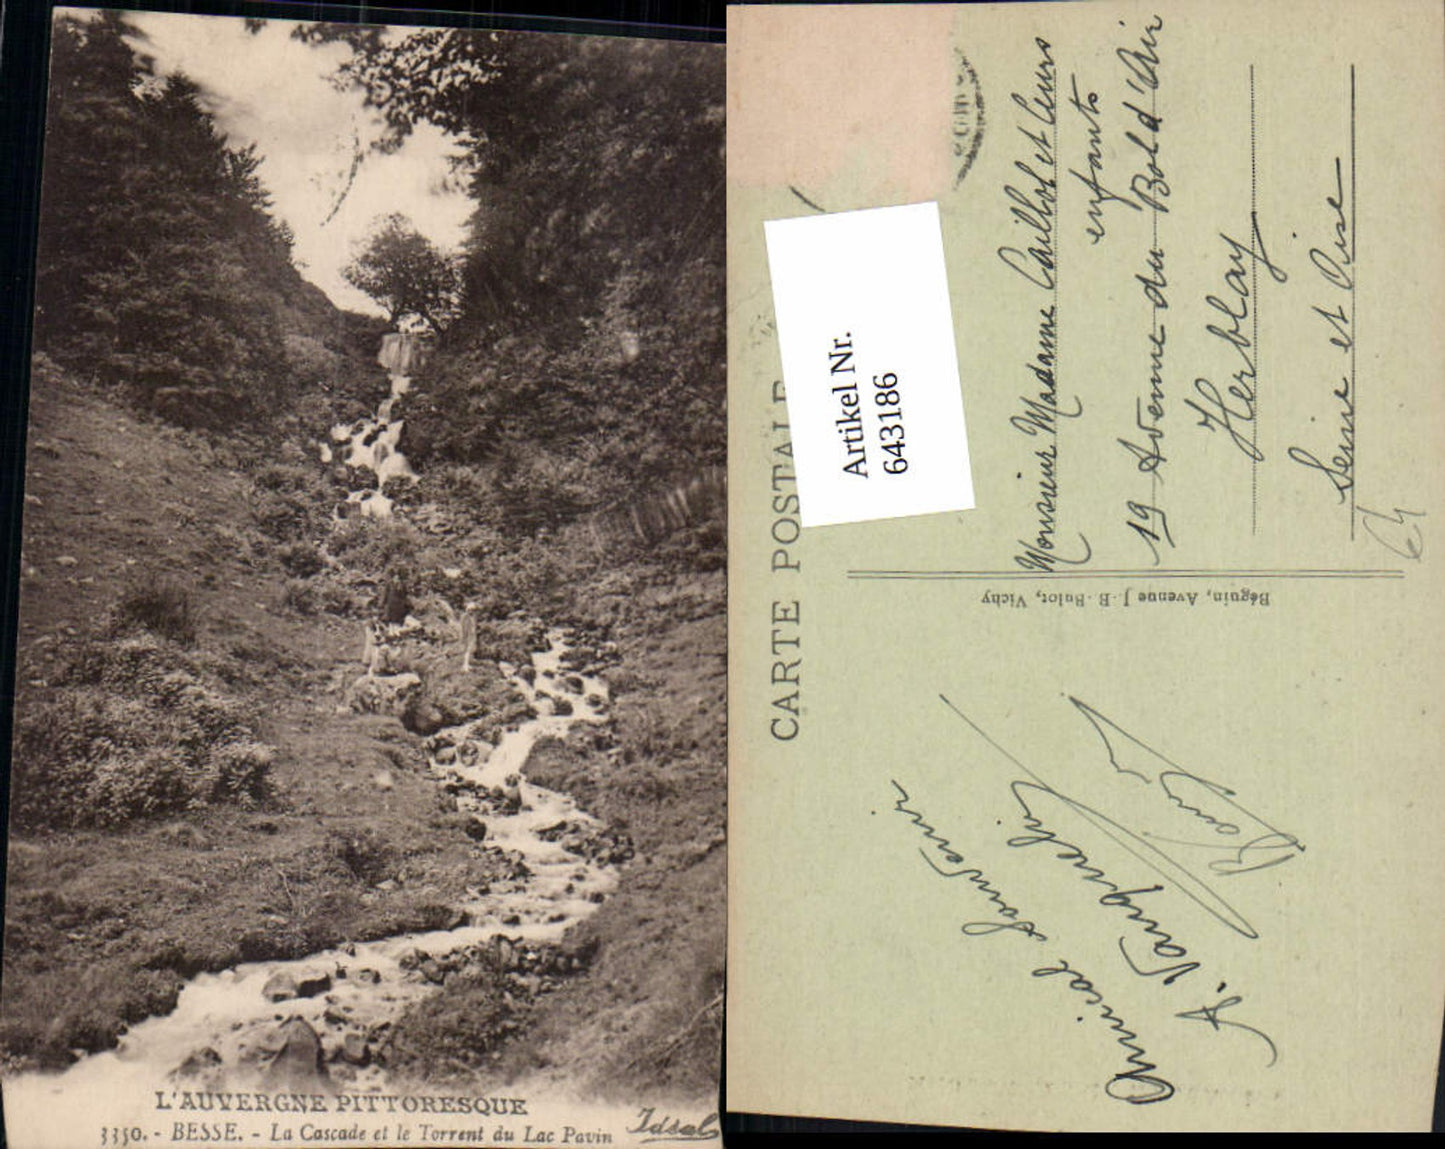 L'AUVERGNE PITTORESQUE
3350. - BESSE. - La Cascade et le Torrent du Lac Pavin
CARTE POSTALE
Artikel Nr.
643186
Monsieur Madame Caillot et leurs
enfants
19 Avenue du Bold'Air
Herblay
Seine et Oise
Béguin, Avenue J.-B. Bulot, Vichy
Amical Souvenir
A.